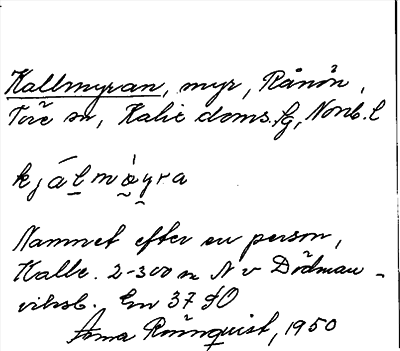 Kallmyran, myr, Rånön,
Töre sn, Kalix doms.g, Norrb. l
kjálmòyra
Namnet efter en person,
Kalle. 2-300 m N v Dödman-
viksb. En 37 SO
Rönnquist, 1950